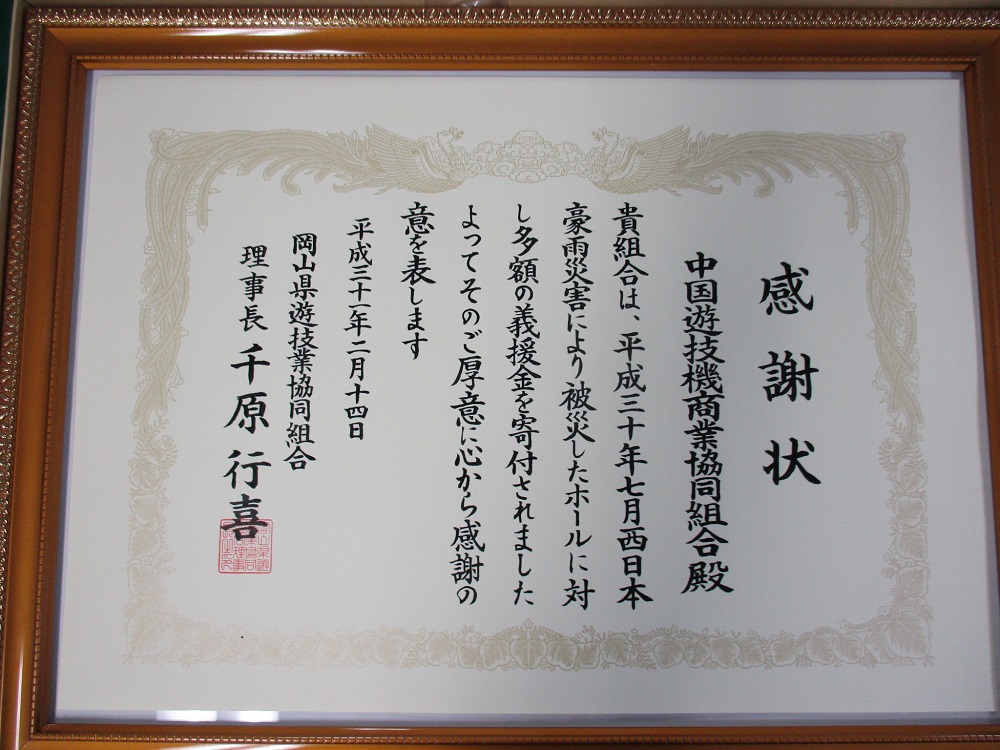 感謝状
中国遊技機商業協同組合殿
貴組合は、平成三十年七月西日本
豪雨災害により被災したホールに対
し多額の義援金を寄付されました
よってそのご厚意に心から感謝の
意を表します
平成三十一年二月十四日
岡山県遊技業協同組合
理事長 千原行喜